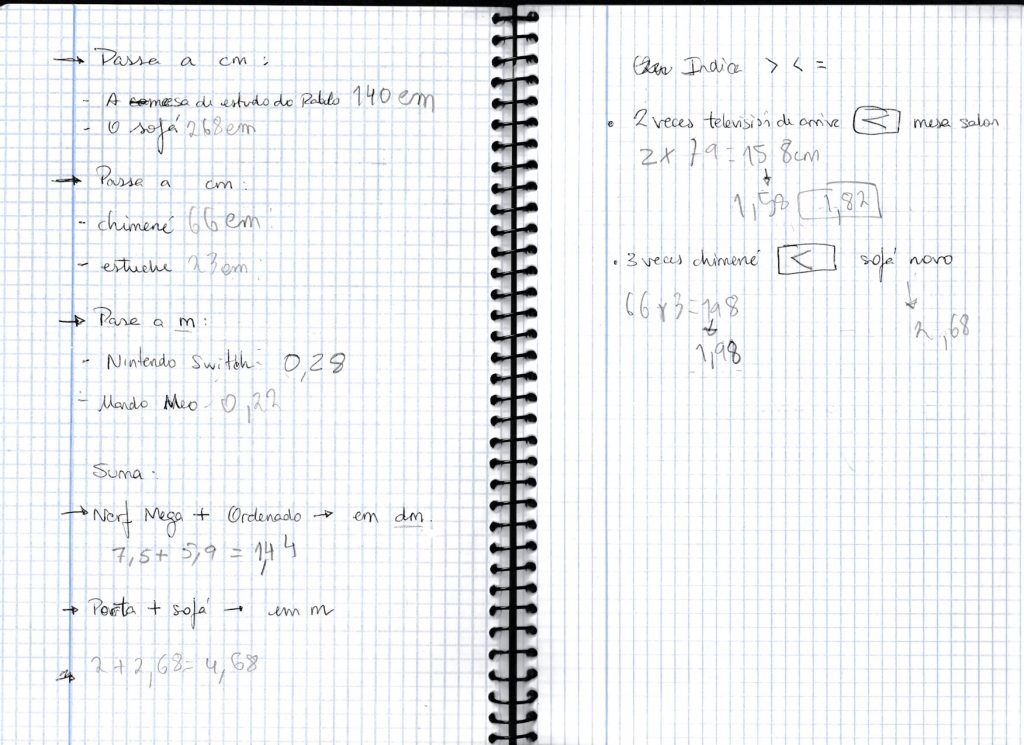 → Passa a cm :
- A mesa de estudo do Pablo 140 cm
- O sofá 268 cm
→ Passa a cm :
- chimené 66 cm
- estuche 23 cm
→ Pase a m :
- Nintendo Switch - 0,28
- Mando Meo - 0,22
Suma :
→ Nerf Mega + Ordenado → em dm.
7,5 + 5,9 = 14,4
→ Porta + sofá → em m
→ 2 + 2,68 = 4,68
Indica > < =
• 2 veces televisión de arriva < mesa salon
2 x 79 = 158 cm
1,58 1,82
• 3 veces chimené < sofá novo
66 x 3 = 198
2,68
1,98